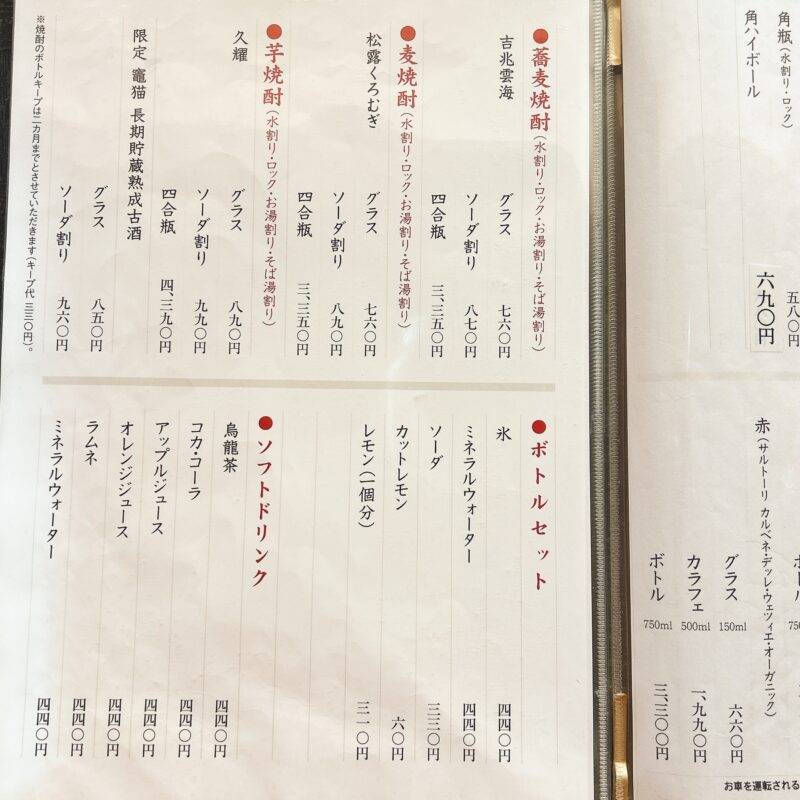 角瓶(水割り・ロック)
五八〇円
角ハイボール
六九〇円
赤(サルトーリ カルベネ・デッレ・ヴェツィエ・オーガニック)
グラス 150ml 六六〇円
カラフェ 500ml 一、九九〇円
ボトル 750ml 三、三〇〇円
お車を運転される
●蕎麦焼酎(水割り・ロック・お湯割り・そば湯割り)
吉兆雲海
グラス 七六〇円
ソーダ割り 八七〇円
四合瓶 三、三五〇円
●麦焼酎(水割り・ロック・お湯割り・そば湯割り)
松露くろむぎ
グラス 七六〇円
ソーダ割り 八九〇円
四合瓶 三、三五〇円
●芋焼酎(水割り・ロック・お湯割り・そば湯割り)
久耀
グラス 八九〇円
ソーダ割り 九九〇円
四合瓶 四、三九〇円
限定 竈猫 長期貯蔵熟成古酒
グラス 八五〇円
ソーダ割り 九六〇円
※焼酎のボトルキープは二カ月までとさせていただきます(キープ代 三三〇円)。
●ボトルセット
氷 四四〇円
ミネラルウォーター 四四〇円
ソーダ 三三〇円
カットレモン 六〇円
レモン(一個分) 三一〇円
●ソフトドリンク
烏龍茶 四四〇円
コカ・コーラ 四四〇円
アップルジュース 四四〇円
オレンジジュース 四四〇円
ラムネ 四四〇円
ミネラルウォーター 四四〇円